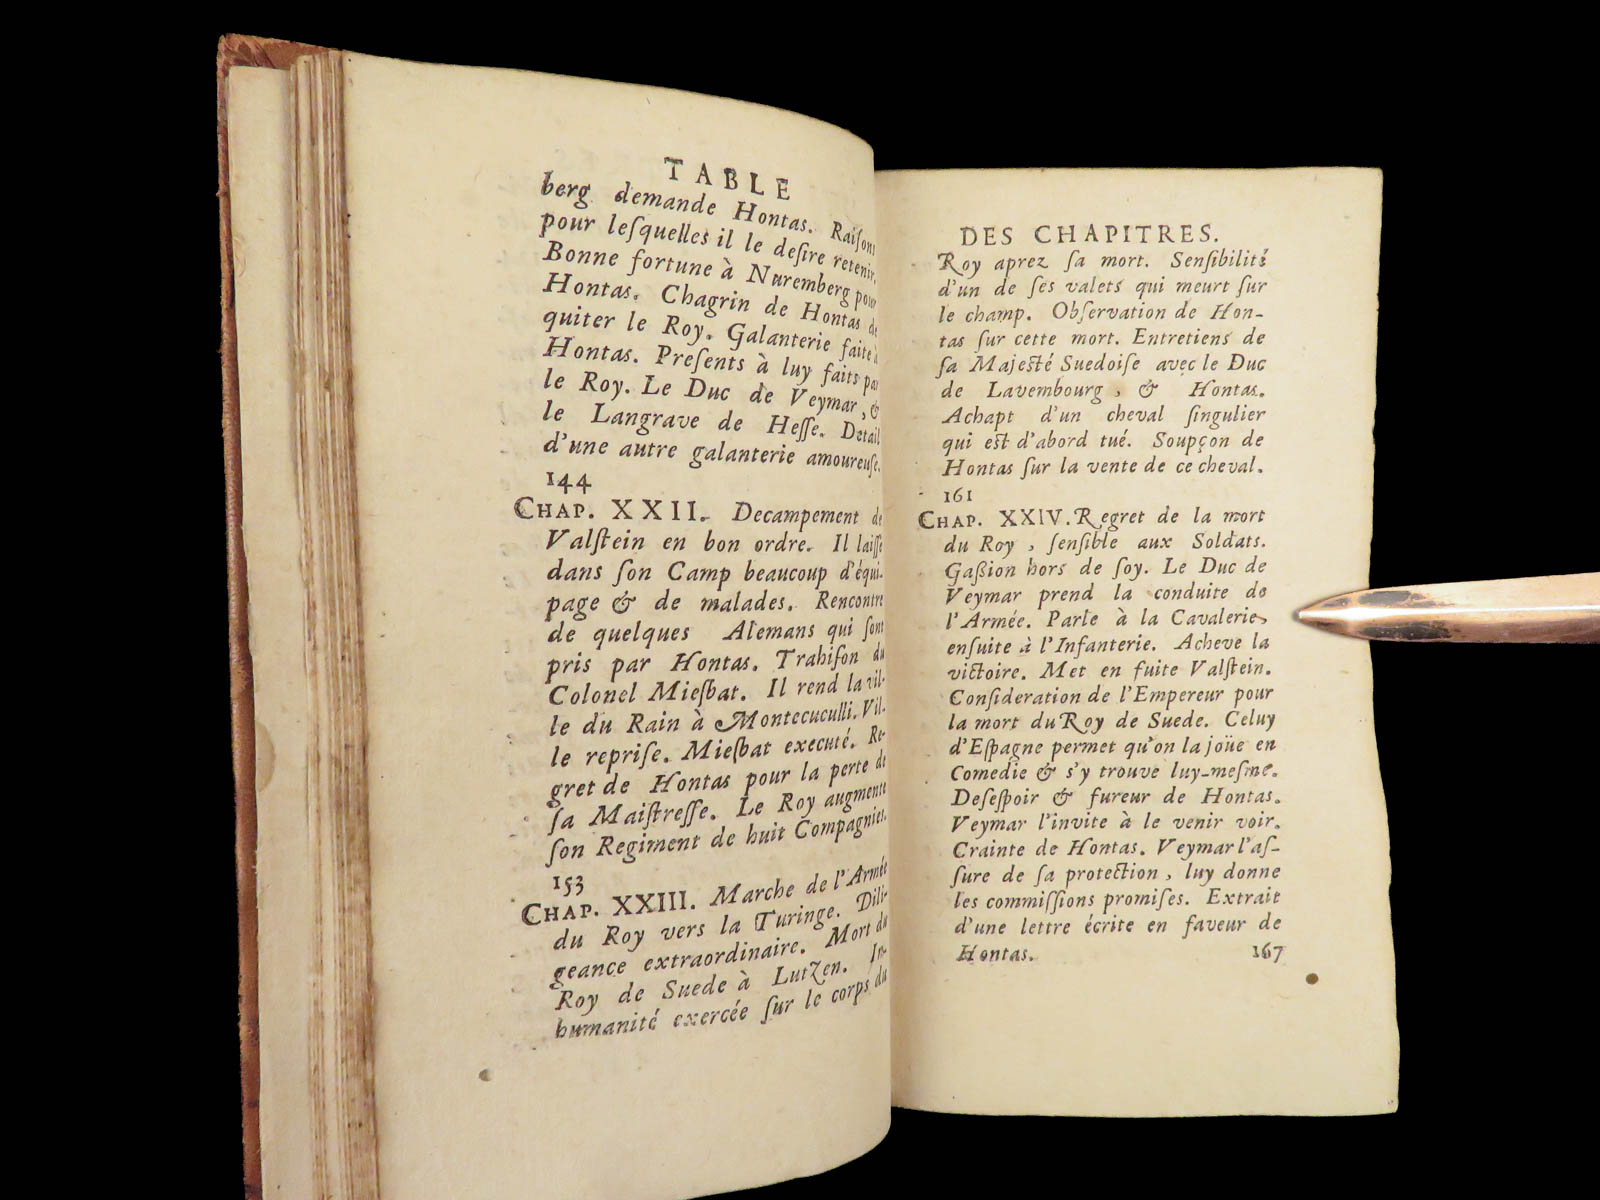 TABLE
berg demande Hontas. Raiſons
pour leſquelles il le deſire retenir.
Bonne fortune à Nuremberg pour
Hontas. Chagrin de Hontas de
quiter le Roy. Galanterie faite à
Hontas. Preſents à luy faits par
le Roy. Le Duc de Veymar, &
le Langrave de Heſſe. Detail
d'une autre galanterie amoureuſe.
144
CHAP. XXII. Decampement de
Valſtein en bon ordre. Il laiſſe
dans ſon Camp beaucoup d'équi-
page & de malades. Rencontre
de quelques Alemans qui ſont
pris par Hontas. Trahiſon du
Colonel Mieſbat. Il rend la vil-
le du Rain à Montecuculli. Vil-
le repriſe. Mieſbat executé. Re-
gret de Hontas pour la perte de
ſa Maiſtreſſe. Le Roy augmente
ſon Regiment de huit Compagnies.
153
CHAP. XXIII. Marche de l'Armée
du Roy vers la Turinge. Dili-
geance extraordinaire. Mort du
Roy de Suede à Lutzen. In-
humanité exercée ſur le corps du
DES CHAPITRES.
Roy aprez ſa mort. Senſibilité
d'un de ſes valets qui meurt ſur
le champ. Obſervation de Hon-
tas ſur cette mort. Entretiens de
ſa Majeſté Suedoiſe avec le Duc
de Lavembourg, & Hontas.
Achapt d'un cheval ſingulier
qui eſt d'abord tué. Soupçon de
Hontas ſur la vente de ce cheval.
161
CHAP. XXIV. Regret de la mort
du Roy, ſenſible aux Soldats.
Gaſſion hors de ſoy. Le Duc de
Veymar prend la conduite de
l'Armée. Parle à la Cavalerie,
enſuite à l'Infanterie. Acheve la
victoire. Met en fuite Valſtein.
Conſideration de l'Empereur pour
la mort du Roy de Suede. Celuy
d'Eſpagne permet qu'on la joüe en
Comedie & s'y trouve luy-meſme.
Deſeſpoir & fureur de Hontas.
Veymar l'invite à le venir voir.
Crainte de Hontas. Veymar l'aſ-
ſure de ſa protection, luy donne
les commiſſions promiſes. Extrait
d'une lettre écrite en faveur de
Hontas. 167